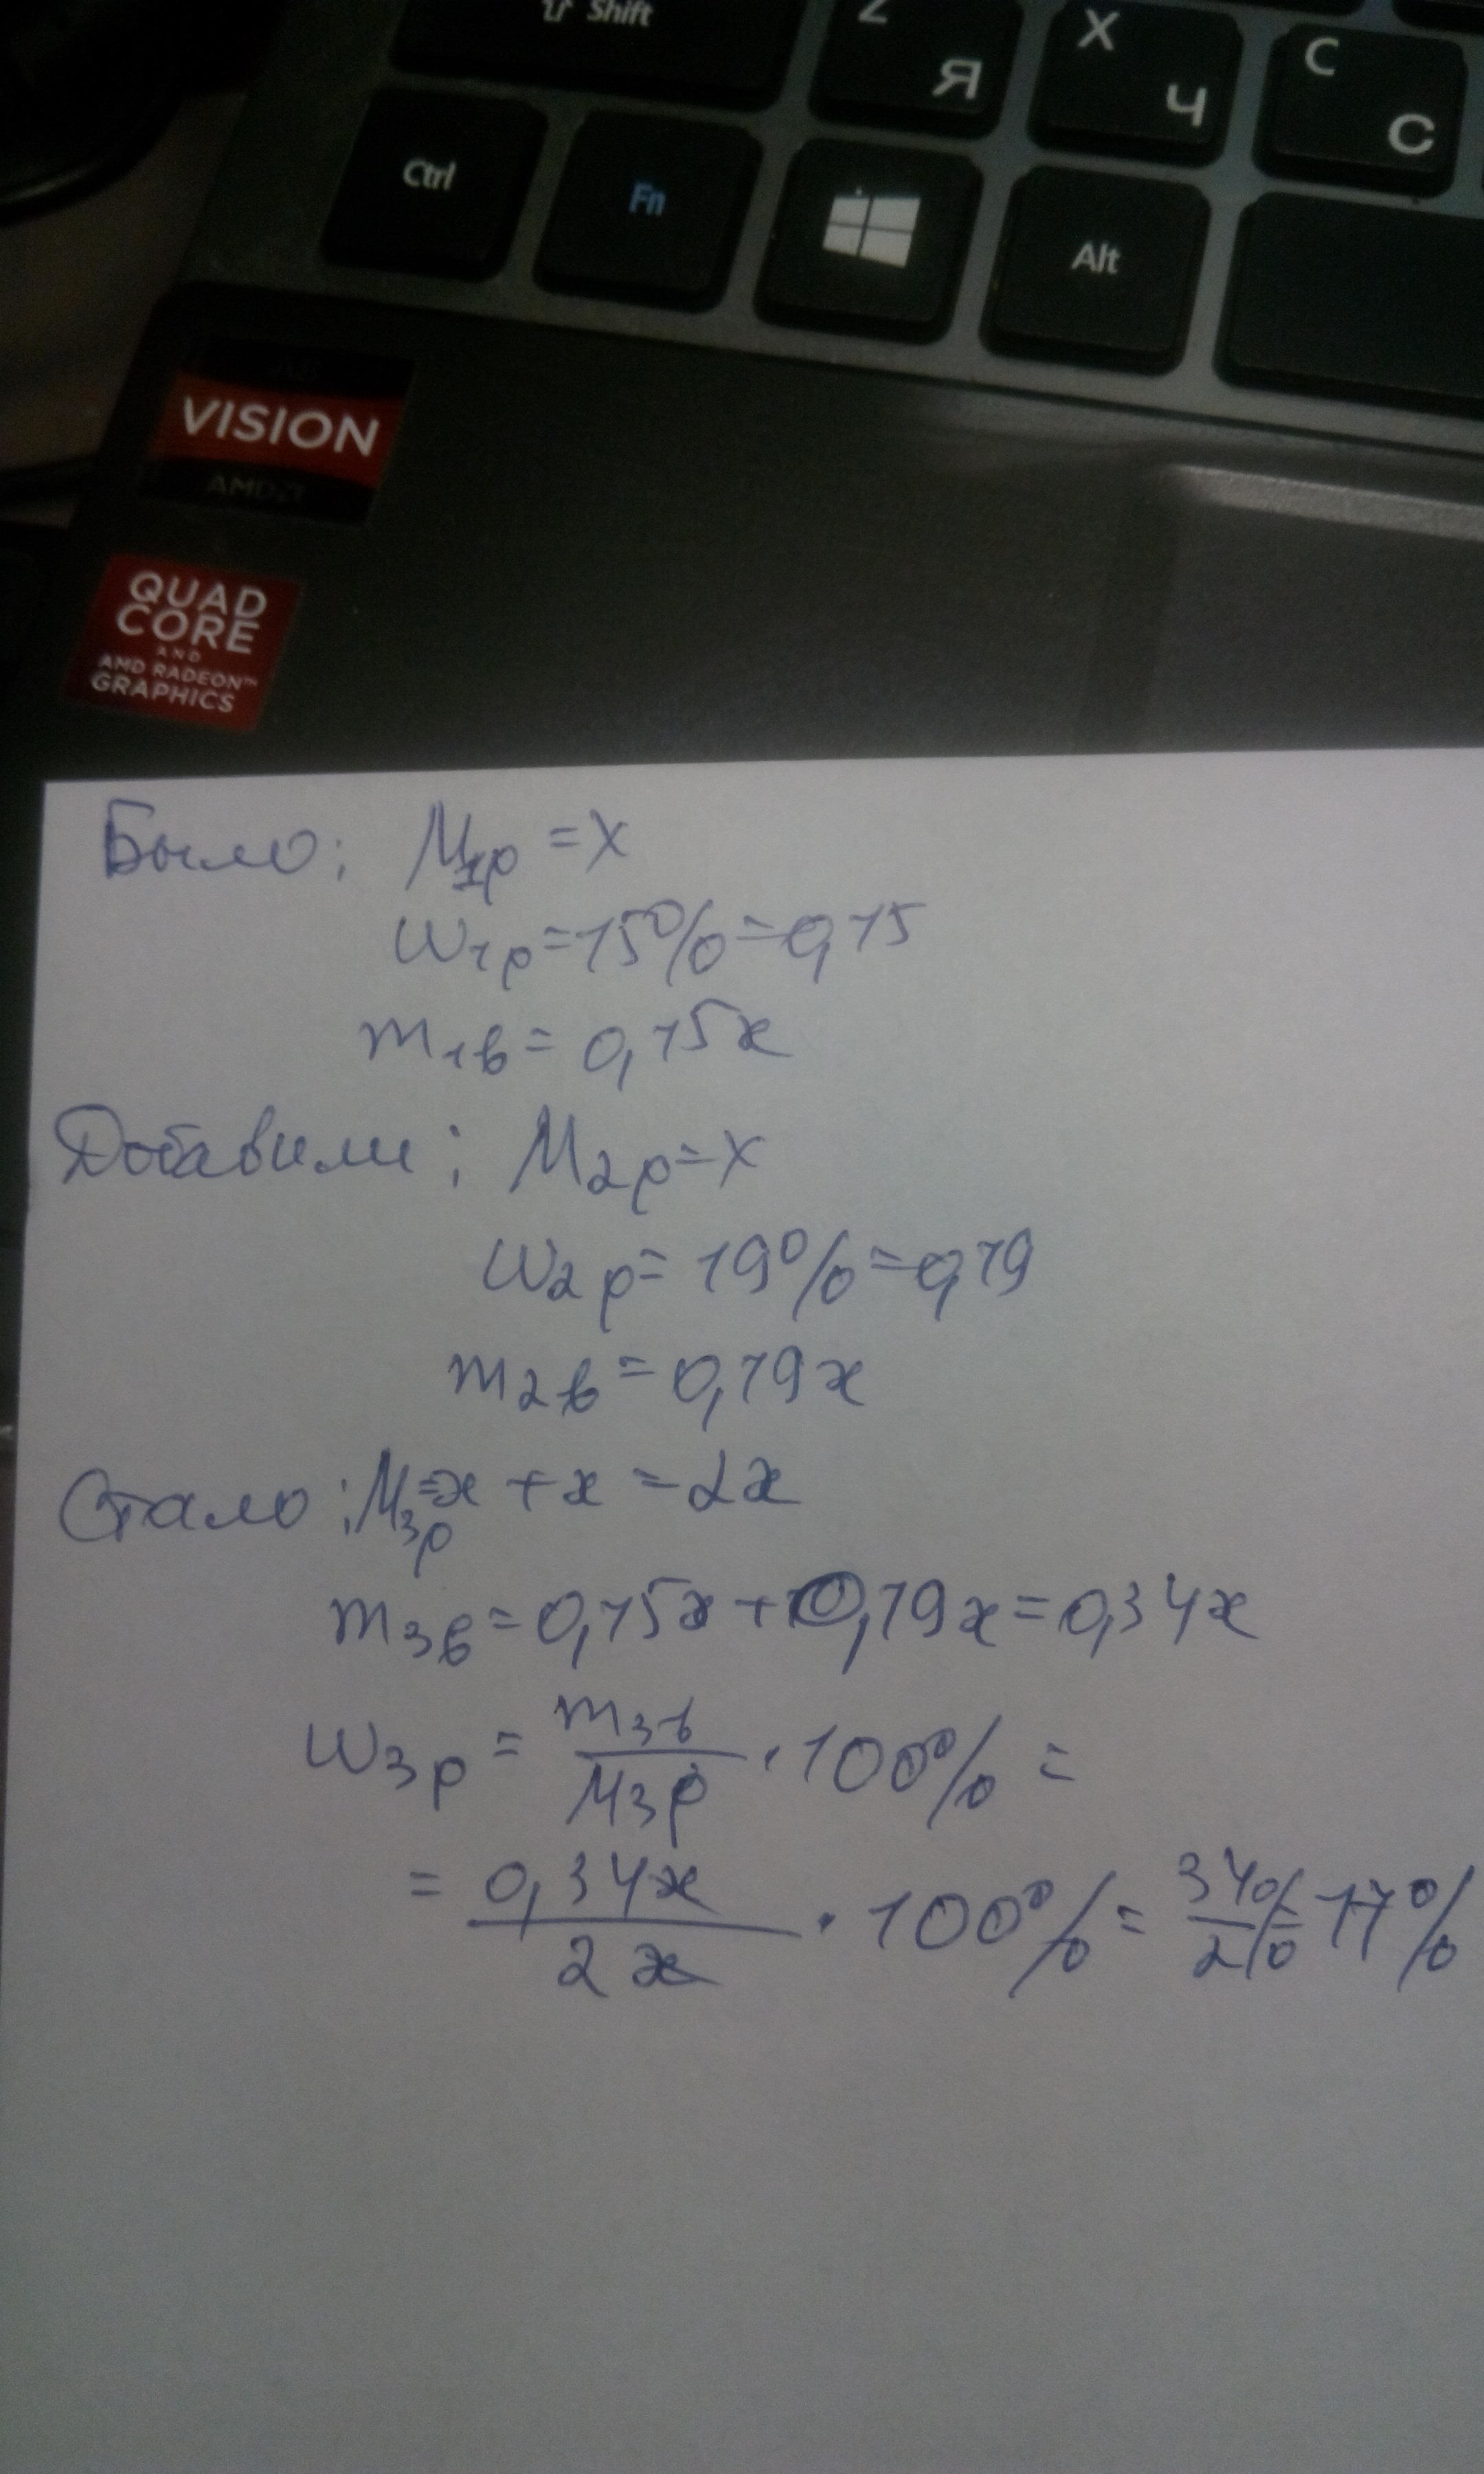 ⇧ Shift
Z Я
X Ч
C С
Ctrl
Fn
Alt
VISION
AMD
QUAD
CORE
AND
AMD RADEON™
GRAPHICS
Было: M₁р = x
ω₁р = 15% = 0,15
m₁в = 0,15x
Добавили: M₂р = x
ω₂р = 19% = 0,19
m₂в = 0,19x
Стало: M₃р = x + x = 2x
m₃в = 0,15x + 0,19x = 0,34x
ω₃р = m₃в / M₃р · 100% =
= 0,34x / 2x · 100% = 34% / 2 = 17%